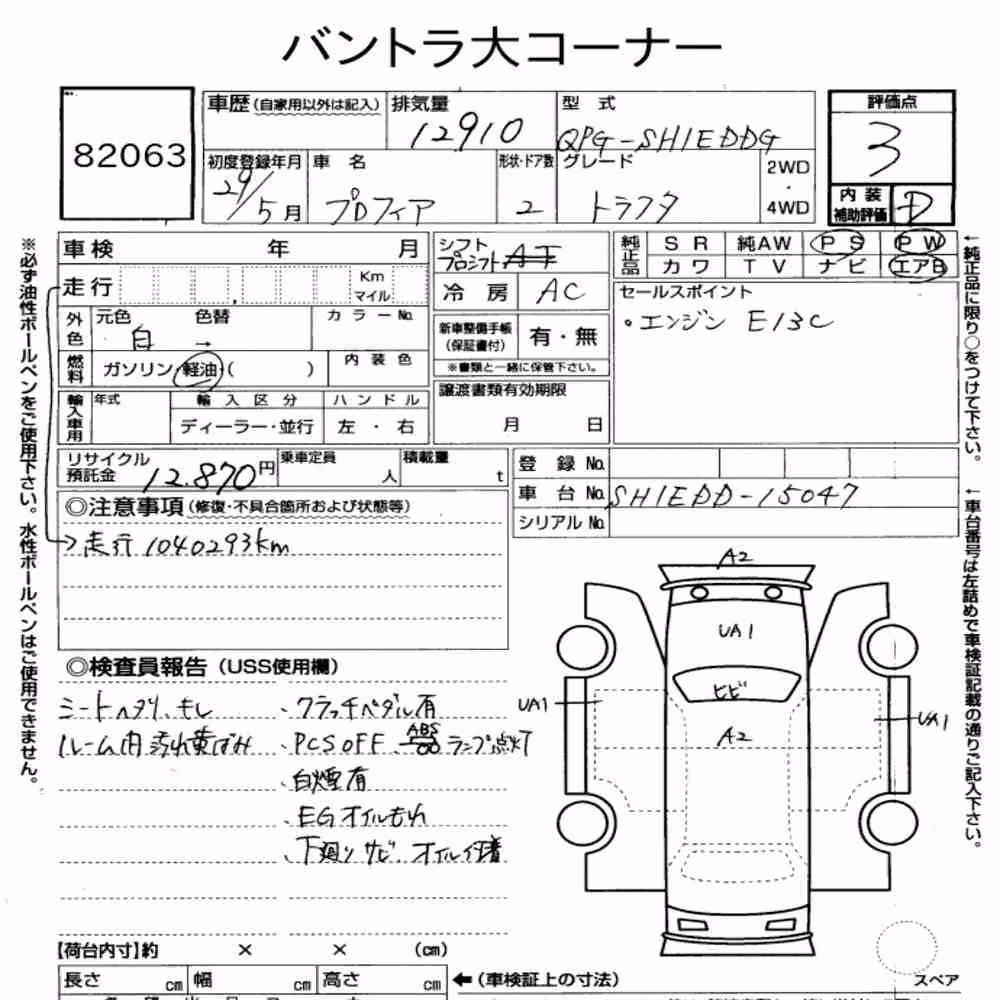 バントラ大コーナー
82063
車歴(自家用以外は記入) 排気量 12910 型式 QPG-SH1EDDG
初度登録年月 29/5月 車名 プロフィア 形状・ドア数 2 グレード トラクタ 2WD・4WD
評価点 3
内装補助評価 D
車検 年 月
走行 Km マイル
外色 元色 白 → 色替 カラーNo.
燃料 ガソリン・軽油・( ) 内装色
輸入車用 年式 輸入区分 ハンドル
ディーラー・並行 左・右
リサイクル預託金 12,870円 乗車定員 人 積載量 t
シフト プロシフト AT
冷房 AC
新車整備手帳(保証書付) 有・無
※書類と一緒に保管下さい。
譲渡書類有効期限
月 日
純正品 SR 純AW PS PW
カワ TV ナビ エアB
セールスポイント
・エンジン E13C
登録No.
車台No. SH1EDD-15047
シリアルNo.
◎注意事項(修復・不具合箇所および状態等)
→走行 1040293km
◎検査員報告(USS使用欄)
シートヘタリ、キレ
ルーム内汚れ黄ばみ
・クラッチペダル有
・PCS OFF ABS ランプ点灯
・白煙有
・EGオイルもれ
・下廻りサビ オイル付着
A2
UA1
ヒビ
UA1
UA1
A2
【荷台内寸】約 × × (cm)
長さ cm 幅 cm 高さ cm ←(車検証上の寸法)
スペア
※必ず油性ボールペンをご使用下さい。水性ボールペンはご使用できません。
←純正品に限り○をつけて下さい。
←車台番号は左詰めで車検証記載の通りご記入下さい。